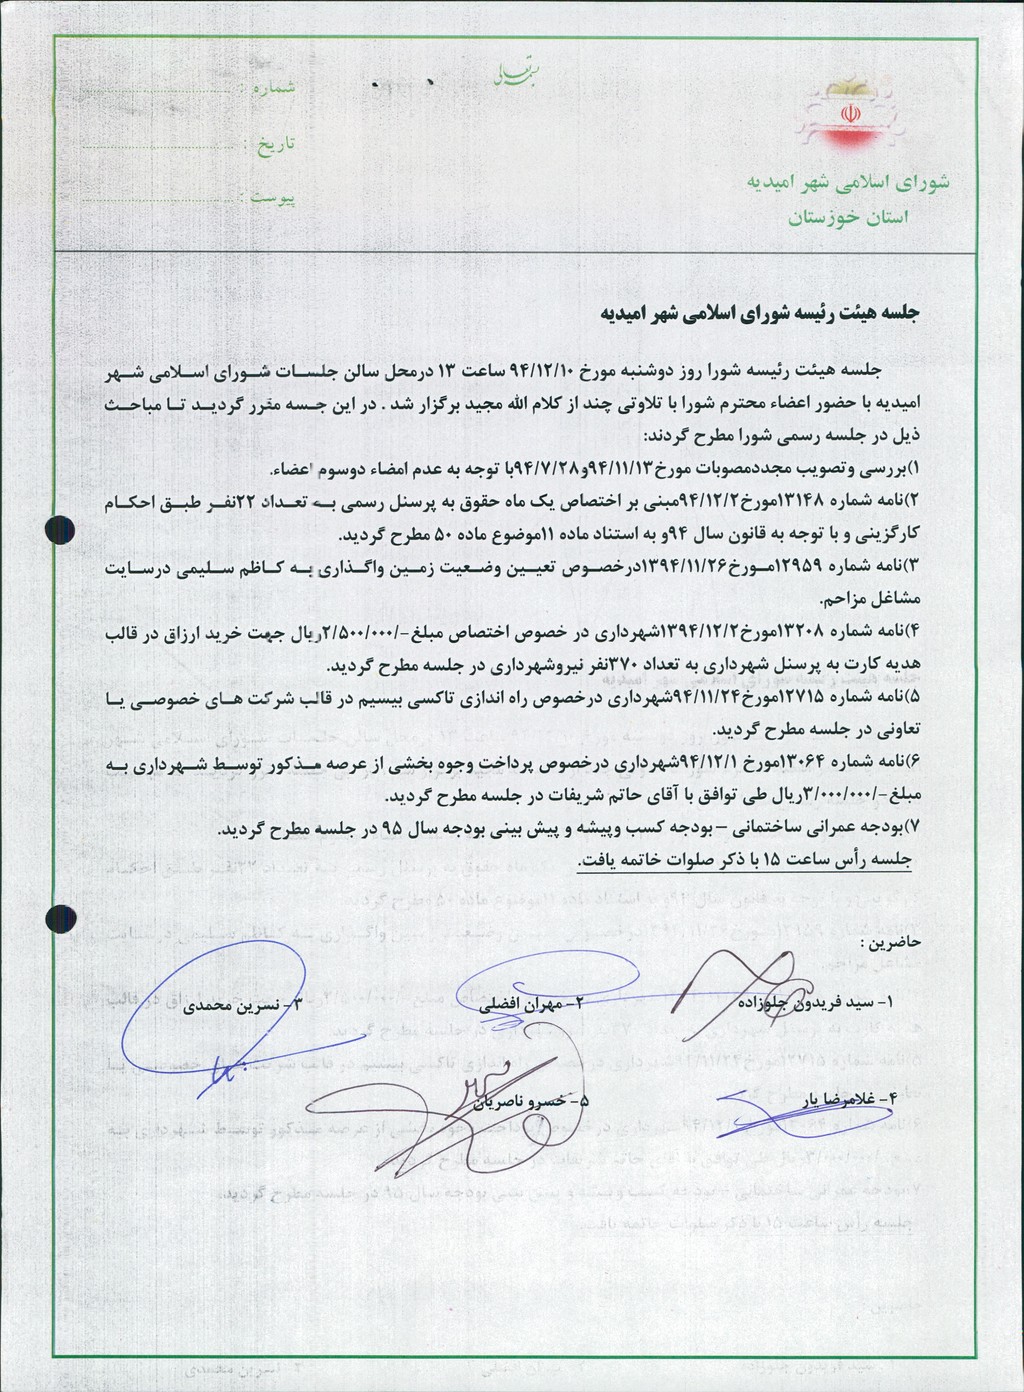 بسمه تعالی
شماره :
تاریخ :
پیوست :
شورای اسلامی شهر امیدیه
استان خوزستان
جلسه هیئت رئیسه شورای اسلامی شهر امیدیه
جلسه هیئت رئیسه شورا روز دوشنبه مورخ ۹۴/۱۲/۱۰ ساعت ۱۳ درمحل سالن جلسات شورای اسلامی شهر
امیدیه با حضور اعضاء محترم شورا با تلاوتی چند از کلام الله مجید برگزار شد . در این جسه مقرر گردید تا مباحث
ذیل در جلسه رسمی شورا مطرح گردند:
۱)بررسی وتصویب مجددمصوبات مورخ۹۴/۱۱/۱۳و۹۴/۷/۲۸با توجه به عدم امضاء دوسوم اعضاء.
۲)نامه شماره ۱۳۱۴۸مورخ۹۴/۱۲/۲مبنی بر اختصاص یک ماه حقوق به پرسنل رسمی به تعداد ۲۲نفر طبق احکام
کارگزینی و با توجه به قانون سال ۹۴و به استناد ماده ۱۱موضوع ماده ۵۰ مطرح گردید.
۳)نامه شماره ۱۲۹۵۹مورخ۱۳۹۴/۱۱/۲۶درخصوص تعیین وضعیت زمین واگذاری به کاظم سلیمی درسایت
مشاغل مزاحم.
۴)نامه شماره ۱۳۲۰۸مورخ۱۳۹۴/۱۲/۲شهرداری در خصوص اختصاص مبلغ-/۲/۵۰۰/۰۰۰ریال جهت خرید ارزاق در قالب
هدیه کارت به پرسنل شهرداری به تعداد ۳۷۰نفر نیروشهرداری در جلسه مطرح گردید.
۵)نامه شماره ۱۲۷۱۵مورخ۹۴/۱۱/۲۴شهرداری درخصوص راه اندازی تاکسی بیسیم در قالب شرکت های خصوصی یا
تعاونی در جلسه مطرح گردید.
۶)نامه شماره ۱۳۰۶۴مورخ ۹۴/۱۲/۱شهرداری درخصوص پرداخت وجوه بخشی از عرصه مذکور توسط شهرداری به
مبلغ-/۳/۰۰۰/۰۰۰ریال طی توافق با آقای حاتم شریفات در جلسه مطرح گردید.
۷)بودجه عمرانی ساختمانی – بودجه کسب وپیشه و پیش بینی بودجه سال ۹۵ در جلسه مطرح گردید.
جلسه رأس ساعت ۱۵ با ذکر صلوات خاتمه یافت.
حاضرین :
۱- سید فریدون جلوزاده ۲- مهران افضلی ۳- نسرین محمدی
۴- غلامرضا یار ۵- خسرو ناصریان